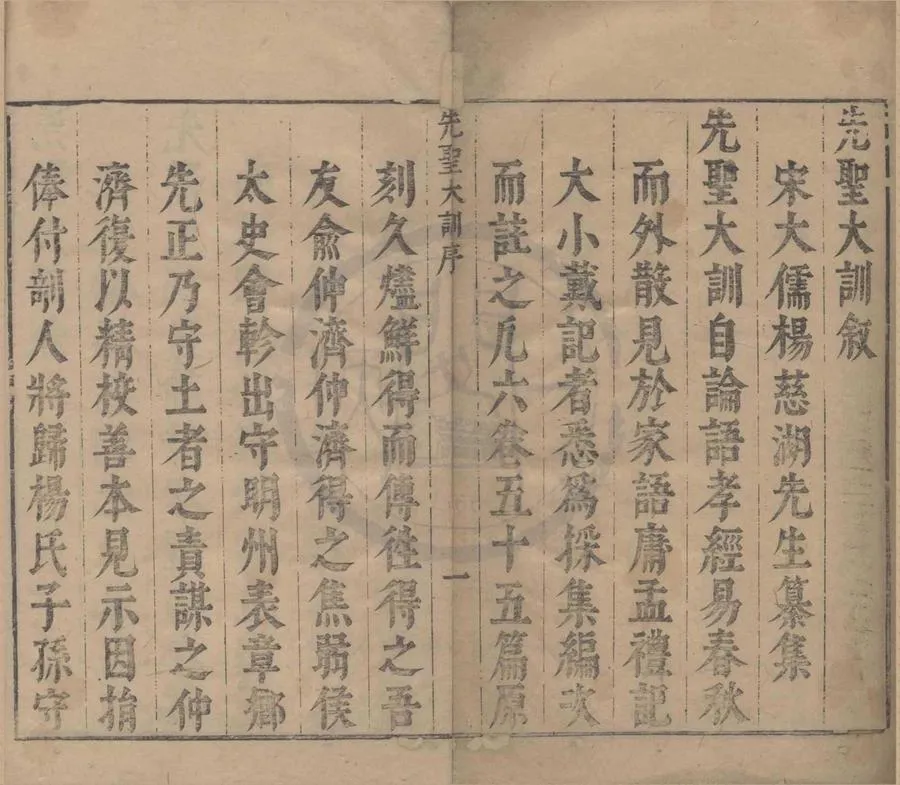 先聖大訓敘
宋大儒楊慈湖先生纂集
先聖大訓自論語孝經易春秋
而外散見於家語庸孟禮記
大小戴記者悉爲採集編次
而註之凢六卷五十五篇原
先聖大訓序
一
刻久燼鮮得而傳徃得之吾
友兪仲濟仲濟得之焦弱侯
太史會軫出守明州表章鄉
先正乃守土者之責謀之仲
濟復以精校善本見示因捐
俸付剞人將歸楊氏子孫守